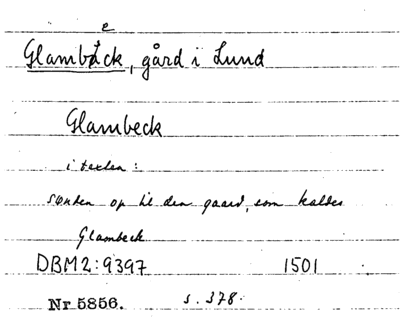 e
Glambäck, gård i Lund
Glambeck
i texten:
sønden op til den gaard, som kaldes
Glambeck
DBM2:9397 1501
Nr 5856. s. 378.